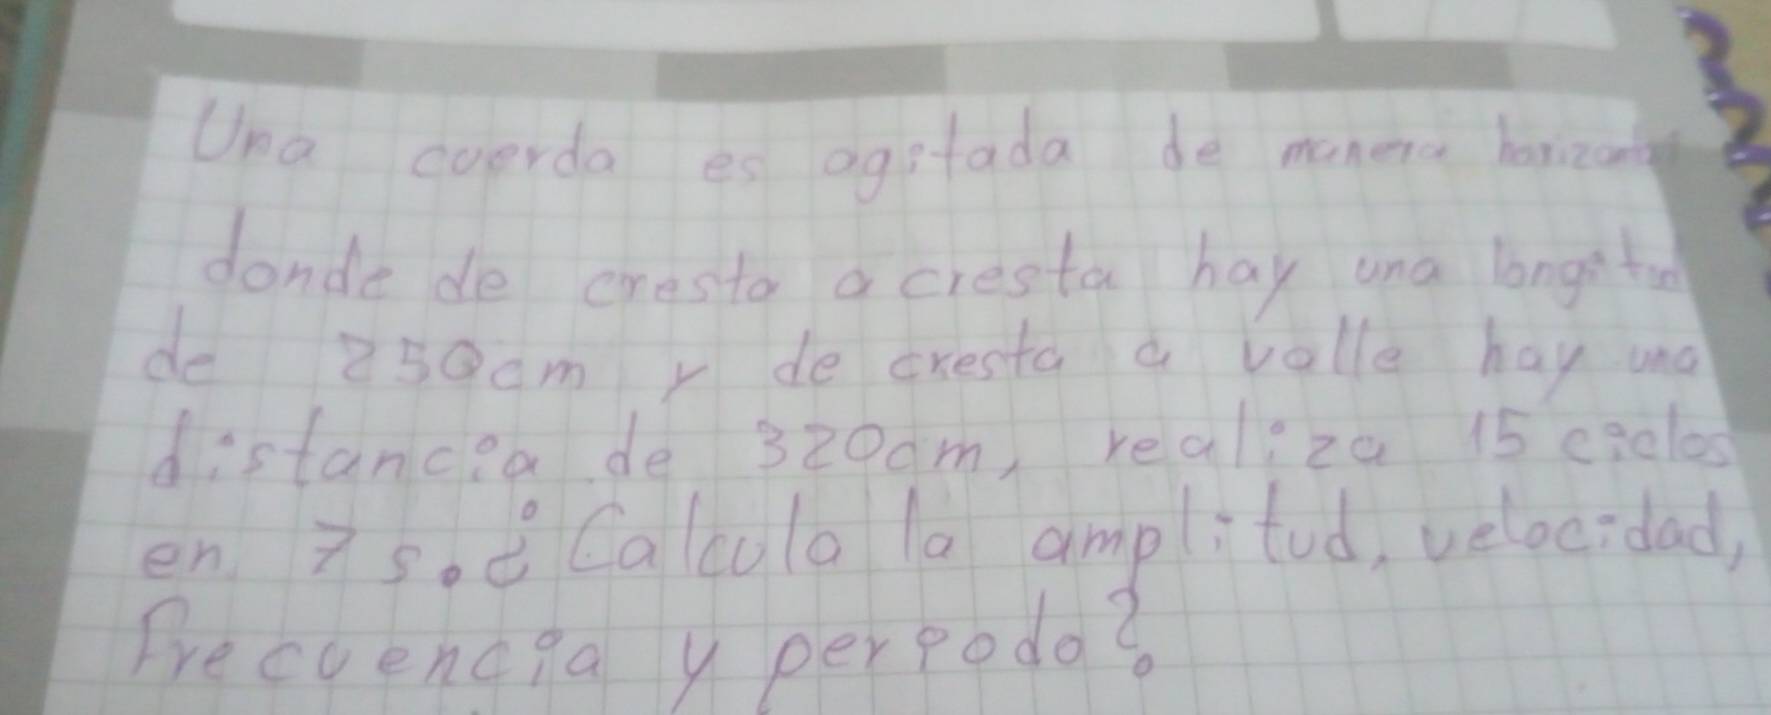 Una cuerda es agitada de manera horizontal
donde de cresta a cresta hay una longitud
de 250cm y de cresta a valle hay una
distancia de 320cm, realiza 15 ciclos
en 7 s. ¿ Calcula la amplitud, velocidad,
frecuencia y período?